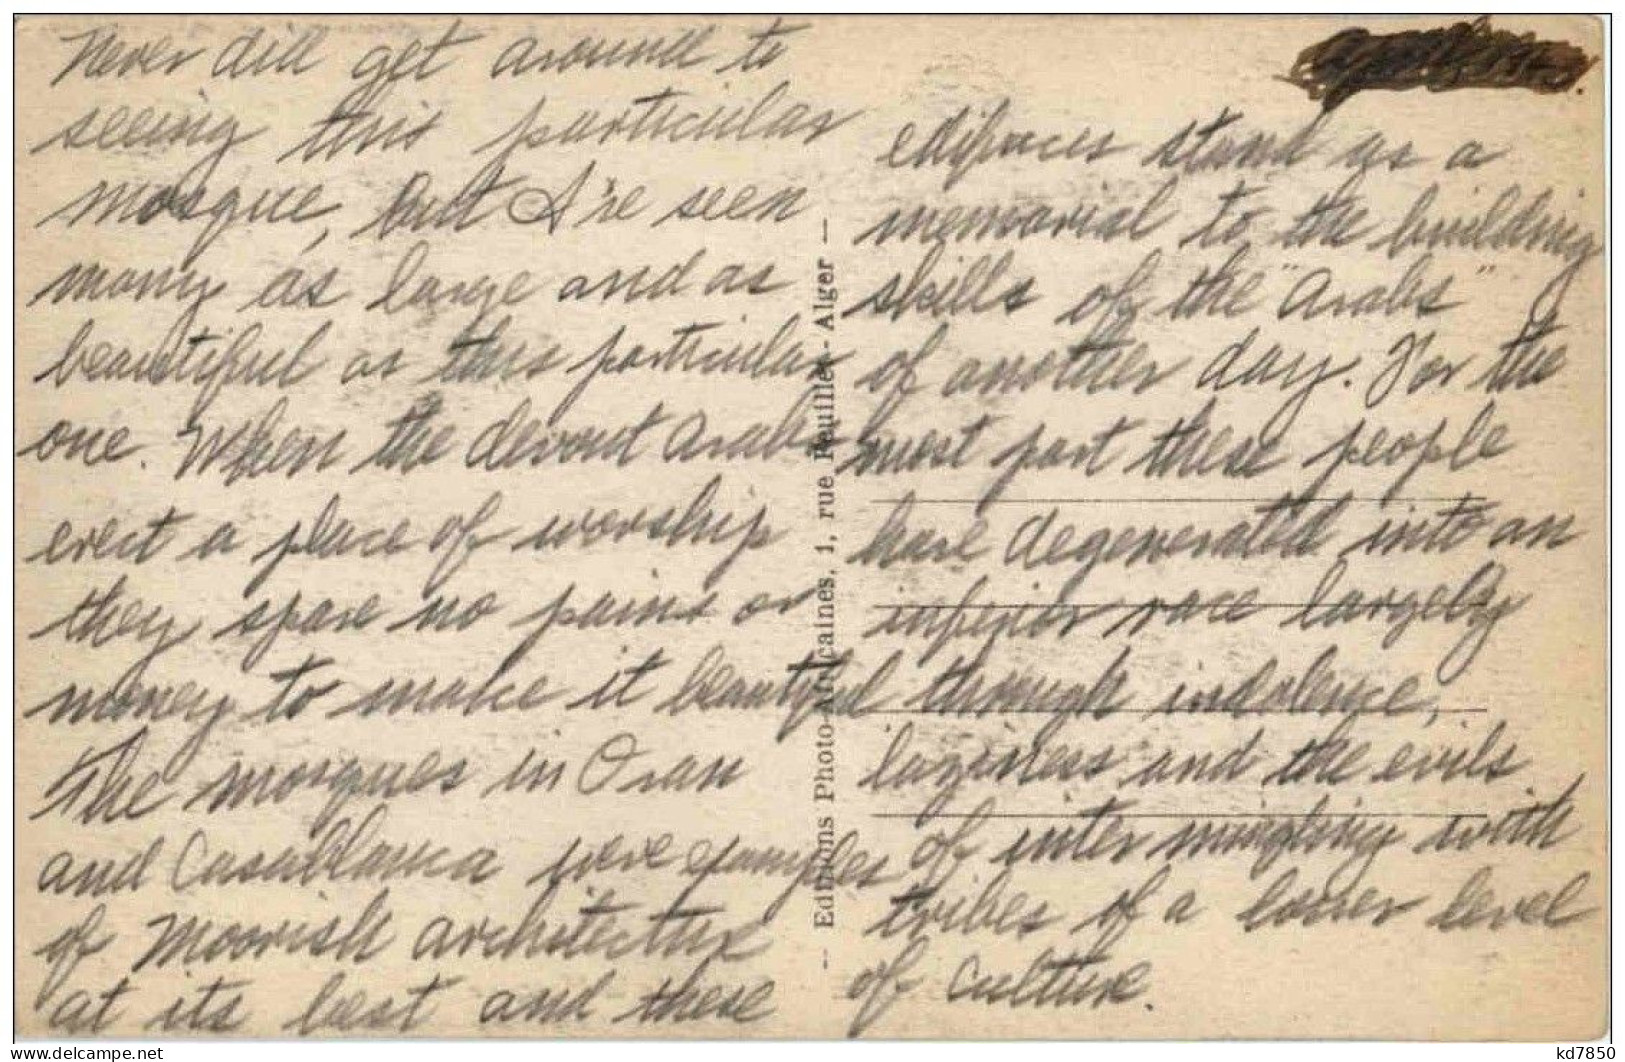 Never did get around to
seeing this particular
mosque, but I've seen
many as large and as
beautiful as this particular
one. When the devout Arabs
erect a place of worship
they spare no pains or
money to make it beautiful
The mosques in Oran
and Casablanca were examples
of Moorish architecture
at its best and these
- Editions Photo-Africaines, 1, rue Feuillet - Alger -
edifaces stand as a
memorial to the building
skills of the "Arabs"
of another day. For the
most part these people
have degenerated into an
inferior race largely
through indolence,
laziness and the evils
of inter mingling with
tribes of a lower level
of culture.
delcampe.net
kd7850